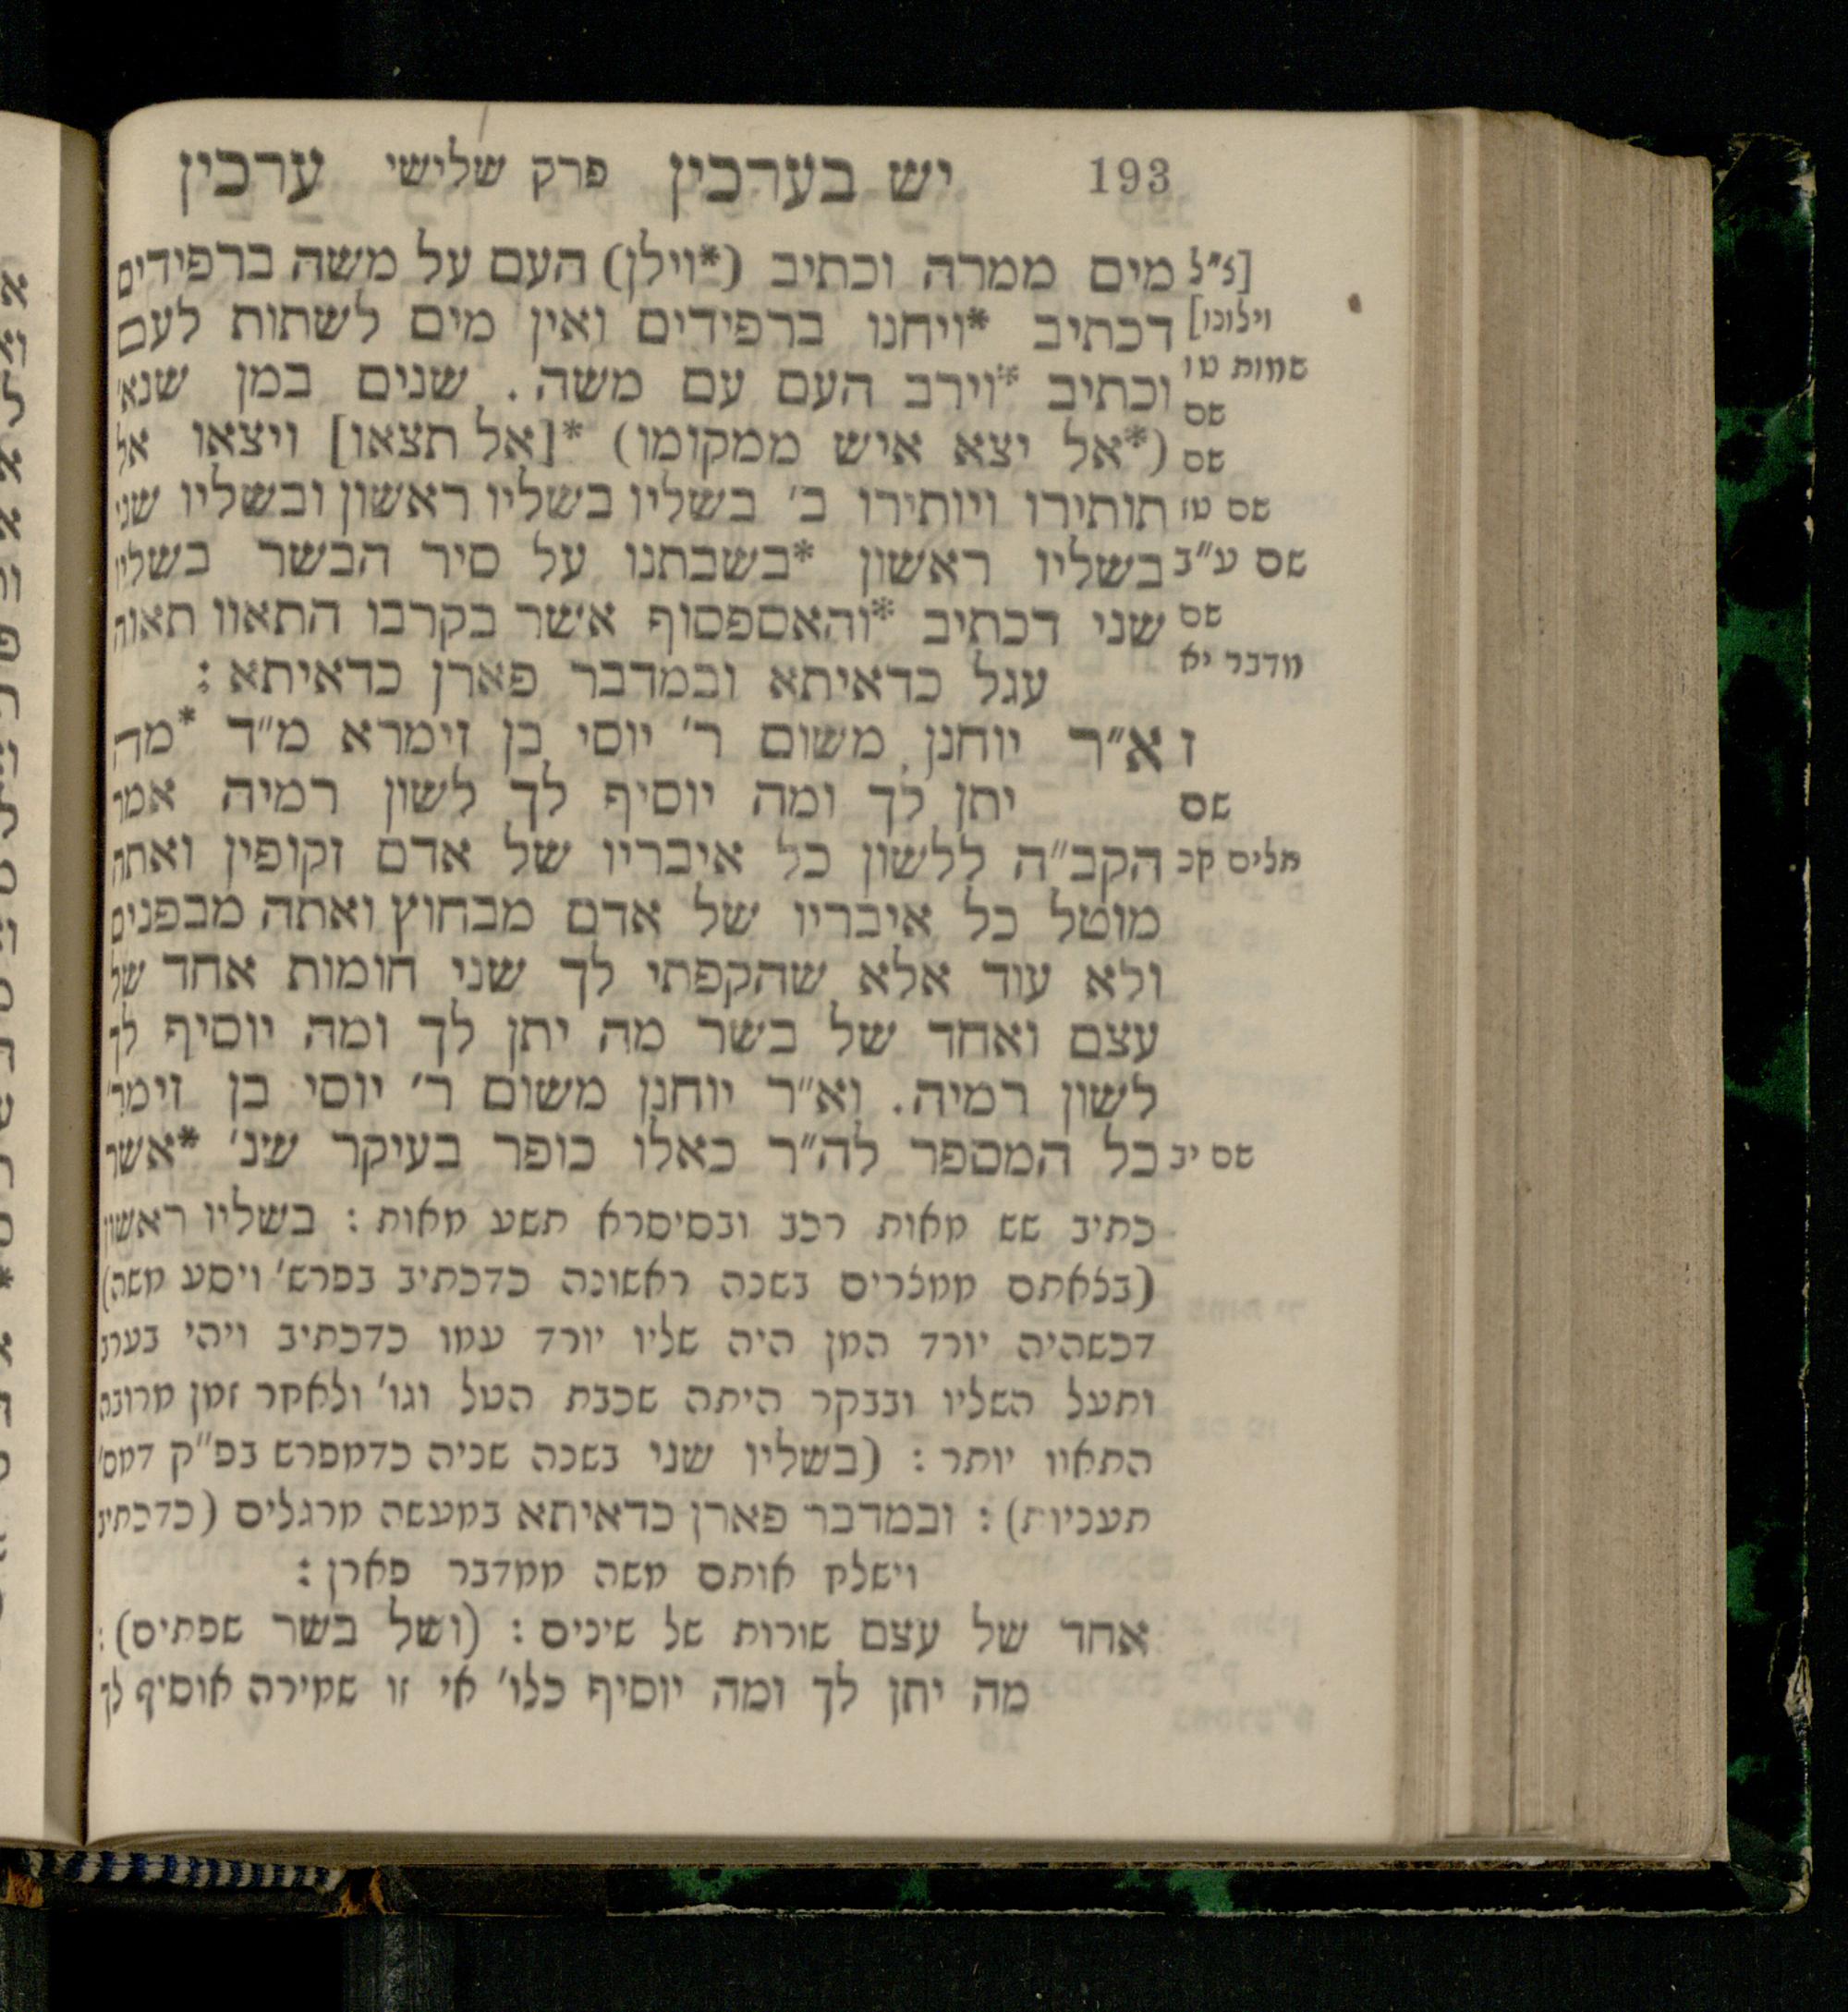 193 יש בערכין פרק שלישי ערכין
מים ממרה וכתיב (*וילן) העם על משה ברפידים
דכתיב *ויחנו ברפידים ואין מים לשתות לעם
וכתיב *וירב העם עם משה. שנים במן שנא'
(*אל יצא איש ממקומו) *[אל תצאו] ויצאו אל
תותירו ויותירו ב' בשליו בשליו ראשון ובשליו שני
בשליו ראשון *בשבתנו על סיר הבשר בשליו
שני דכתיב *והאספסוף אשר בקרבו התאוו תאוה
עגל כדאיתא ובמדבר פארן כדאיתא :
ז א״ר יוחנן משום ר' יוסי בן זימרא מ״ד *מה
יתן לך ומה יוסיף לך לשון רמיה אמר
הקב״ה ללשון כל איבריו של אדם זקופין ואתה
מוטל כל איבריו של אדם מבחוץ ואתה מבפנים
ולא עוד אלא שהקפתי לך שני חומות אחד של
עצם ואחד של בשר מה יתן לך ומה יוסיף לך
לשון רמיה. וא״ר יוחנן משום ר' יוסי בן זימר'
כל המספר לה״ר כאלו כופר בעיקר שנ' *אשר
[צ״ל
וילונו]
שמות טו
שם
שם
שם טז
שם ע״ב
שם
מדבר יא
שם
תלים קכ
שם יב
כתיב שש מאות רכב ובסיסרא תשע מאות : בשליו ראשון
(בצאתם ממצרים בשנה ראשונה כדכתיב בפרש' ויסע משה)
דכשהיה יורד המן היה שליו יורד עמו כדכתיב ויהי בערב
ותעל השליו ובבקר היתה שכבת הטל וגו' ולאחר זמן מרובה
התאוו יותר : (בשליו שני בשנה שניה כדמפרש בפ״ק דמס'
תעניות) : ובמדבר פארן כדאיתא במעשה מרגלים (כדכתיב
וישלח אותם משה ממדבר פארן :
אחד של עצם שורות של שינים : (ושל בשר שפתים) :
מה יתן לך ומה יוסיף כלו' אי זו שמירה אוסיף לך